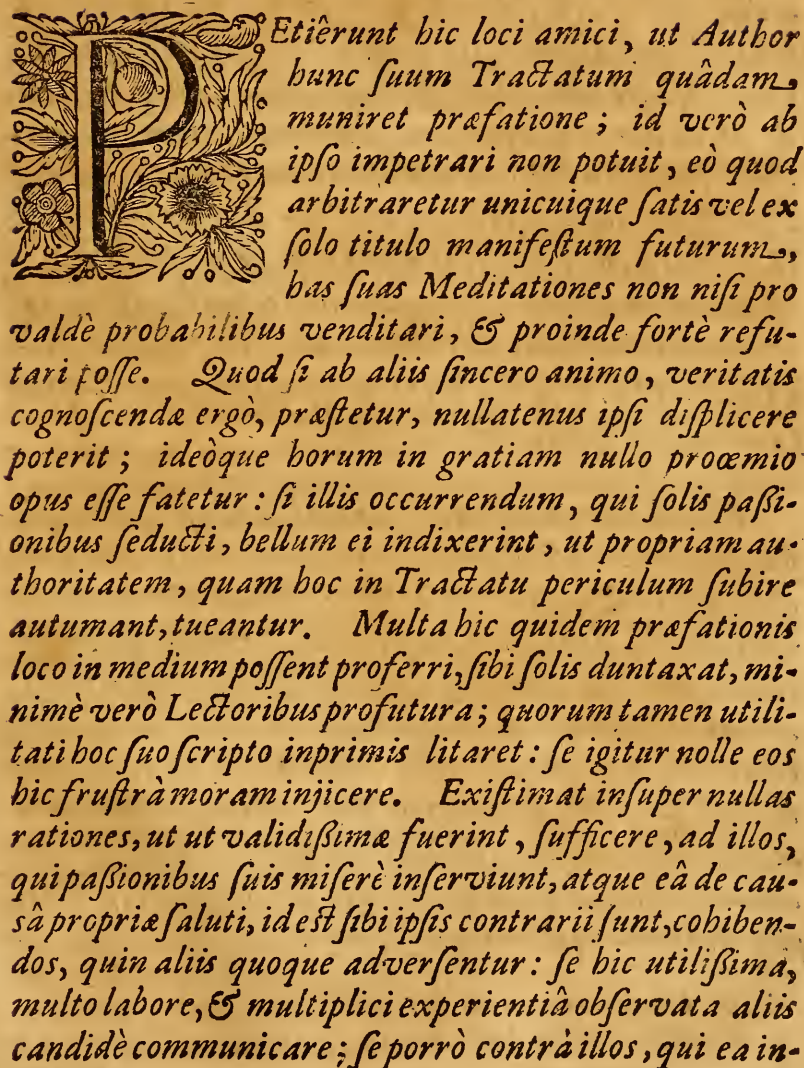 PEtiêrunt hic loci amici, ut Author
hunc ſuum Tractatum quâdam
muniret præfatione; id verò ab
ipſo impetrari non potuit, eò quod
arbitraretur unicuique ſatis vel ex
ſolo titulo manifeſtum futurum,
has ſuas Meditationes non niſi pro
valdè probabilibus venditari, & proinde fortè refu-
tari poſſe. Quod ſi ab aliis ſincero animo, veritatis
cognoſcendæ ergò, præſtetur, nullatenus ipſi diſplicere
poterit; ideòque horum in gratiam nullo proœmio
opus eſſe fatetur: ſi illis occurrendum, qui ſolis paßi-
onibus ſeducti, bellum ei indixerint, ut propriam au-
thoritatem, quam hoc in Tractatu periculum ſubire
autumant, tueantur. Multa hic quidem præfationis
loco in medium poſſent proferri, ſibi ſolis duntaxat, mi-
nimè verò Lectoribus profutura; quorum tamen utili-
tati hoc ſuo ſcripto inprimis litaret: ſe igitur nolle eos
hic fruſtrà moram injicere. Exiſtimat inſuper nullas
rationes, ut ut validißimæ fuerint, ſufficere, ad illos,
qui paßionibus ſuis miſerè inſerviunt, atque eâ de cau-
sâ propriæ ſaluti, id eſt ſibi ipſis contrarii ſunt, cohiben-
dos, quin aliis quoque adverſentur: ſe hic utilißima,
multo labore, & multiplici experientiâ obſervata aliis
candidè communicare; ſe porrò contrà illos, qui ea in-